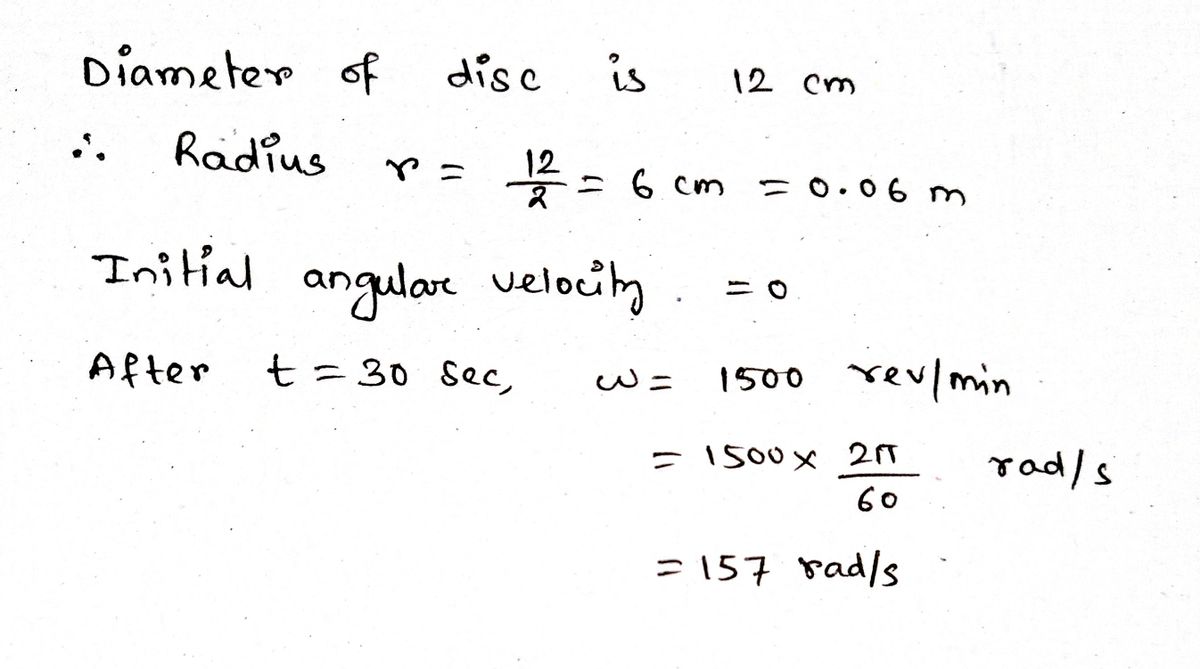 Diameter of disc is 12 cm
∴ Radius r = 12/2 = 6 cm = 0.06 m
Initial angular velocity = 0
After t = 30 sec, ω = 1500 rev/min
= 1500 × 2π/60 rad/s
= 157 rad/s